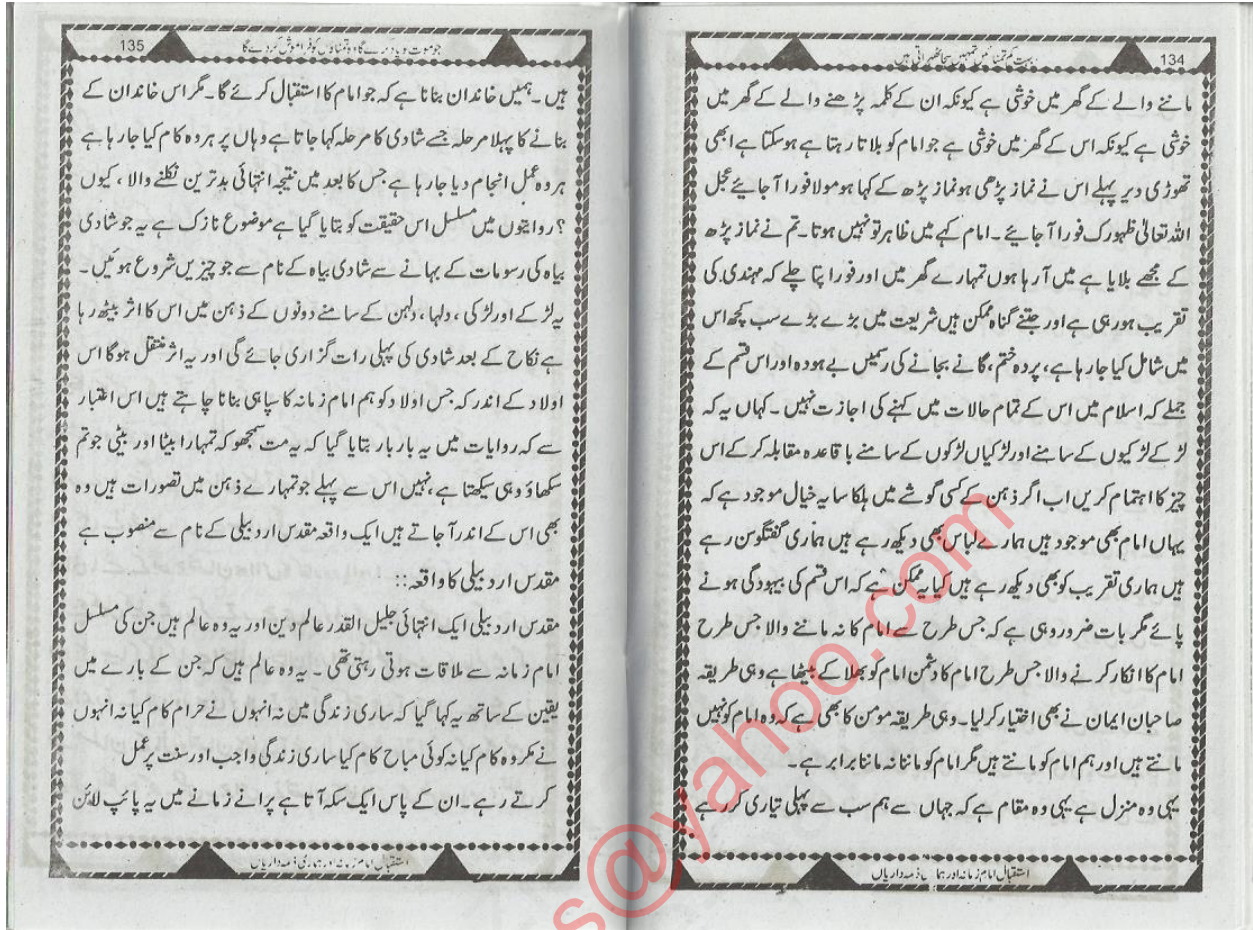 134
بہت کم تمنائیں تمہیں سچا ٹھہراتی ہیں
ماننے والے کے گھر میں خوشی ہے کیونکہ ان کے کلمہ پڑھنے والے کے گھر میں
خوشی ہے کیونکہ اس کے گھر میں خوشی ہے جو امام کو بلاتا رہتا ہے ہو سکتا ہے ابھی
تھوڑی دیر پہلے اس نے نماز پڑھی ہو نماز پڑھ کے کہا ہو مولا فورا آ جائیے عجل
اللہ تعالیٰ ظہورک فورا آ جائیے۔ امام کہے میں ظاہر تو نہیں ہوتا۔ تم نے نماز پڑھ
کے مجھے بلایا ہے میں آ رہا ہوں تمہارے گھر میں اور فورا پتا چلے کہ مہندی کی
تقریب ہو رہی ہے اور جتنے گناہ ممکن ہیں شریعت میں بڑے بڑے سب کچھ اس
میں شامل کیا جا رہا ہے، پردہ ختم، گانے بجانے کی رسمیں بے ہودہ اور اس قسم کے
جملے کہ اسلام میں اس کے تمام حالات میں کہنے کی اجازت نہیں۔ کہاں یہ کہ
لڑکے لڑکیوں کے سامنے اور لڑکیاں لڑکوں کے سامنے با قاعدہ مقابلہ کر کے اس
چیز کا اہتمام کریں اب اگر ذہن کے کسی گوشے میں ہلکا سا یہ خیال موجود ہے کہ
یہاں امام بھی موجود ہیں ہمارے لباس بھی دیکھ رہے ہیں ہماری گفتگو سن رہے
ہیں ہماری تقریب کو بھی دیکھ رہے ہیں کیا یہ ممکن ہے کہ اس قسم کی بیہودگی ہونے
پائے مگر بات ضرور وہی ہے کہ جس طرح سے امام کا نہ ماننے والا جس طرح
امام کا انکار کرنے والا جس طرح امام کا دشمن امام کو بھلا کے بیٹھا ہے وہی طریقہ
صاحبان ایمان نے بھی اختیار کر لیا۔ وہی طریقہ مومن کا بھی ہے کہ وہ امام کو نہیں
مانتے ہیں اور ہم امام کو مانتے ہیں مگر امام کو ماننا نہ ماننا برابر ہے۔
یہی وہ منزل ہے یہی وہ مقام ہے کہ جہاں سے ہم سب سے پہلی تیاری کر رہے
استقبال امام زمانہ اور ہماری ذمہ داریاں
135
جو موت کو یاد کرے گا وہ تمناؤں کو فراموش کر دے گا
ہیں۔ ہمیں خاندان بنانا ہے کہ جو امام کا استقبال کرئے گا۔ مگر اس خاندان کے
بنانے کا پہلا مرحلہ جسے شادی کا مرحلہ کہا جاتا ہے وہاں پر ہر وہ کام کیا جا رہا ہے
ہر وہ عمل انجام دیا جا رہا ہے جس کا بعد میں نتیجہ انتہائی بدترین نکلنے والا، کیوں
؟ روایتوں میں مسلسل اس حقیقت کو بتایا گیا ہے موضوع نازک ہے یہ جو شادی
بیاہ کی رسومات کے بہانے سے شادی بیاہ کے نام سے جو چیزیں شروع ہوئیں۔
یہ لڑکے اور لڑکی، دلہا، دلہن کے سامنے دونوں کے ذہن میں اس کا اثر بیٹھ رہا
ہے نکاح کے بعد شادی کی پہلی رات گزاری جائے گی اور یہ اثر منتقل ہوگا اس
اولاد کے اندر کہ جس اولاد کو ہم امام زمانہ کا سپاہی بنانا چاہتے ہیں اس اعتبار
سے کہ روایات میں یہ بار بار بتایا گیا کہ یہ مت سمجھو کہ تمہارا بیٹا اور بیٹی جو تم
سکھاؤ وہی سیکھتا ہے، نہیں اس سے پہلے جو تمہارے ذہن میں تصورات ہیں وہ
بھی اس کے اندر آ جاتے ہیں ایک واقعہ مقدس اردبیلی کے نام سے منصوب ہے
مقدس اردبیلی کا واقعہ::
مقدس اردبیلی ایک انتہائی جلیل القدر عالم دین اور یہ وہ عالم ہیں جن کی مسلسل
امام زمانہ سے ملاقات ہوتی رہتی تھی۔ یہ وہ عالم ہیں کہ جن کے بارے میں
یقین کے ساتھ یہ کہا گیا کہ ساری زندگی میں نہ انہوں نے حرام کام کیا نہ انہوں
نے مکروہ کام کیا نہ کوئی مباح کام کیا ساری زندگی واجب اور سنت پر عمل
کرتے رہے۔ ان کے پاس ایک سکہ آتا ہے پرانے زمانے میں یہ پائپ لائن
استقبال امام زمانہ اور ہماری ذمہ داریاں
s@yahoo.com